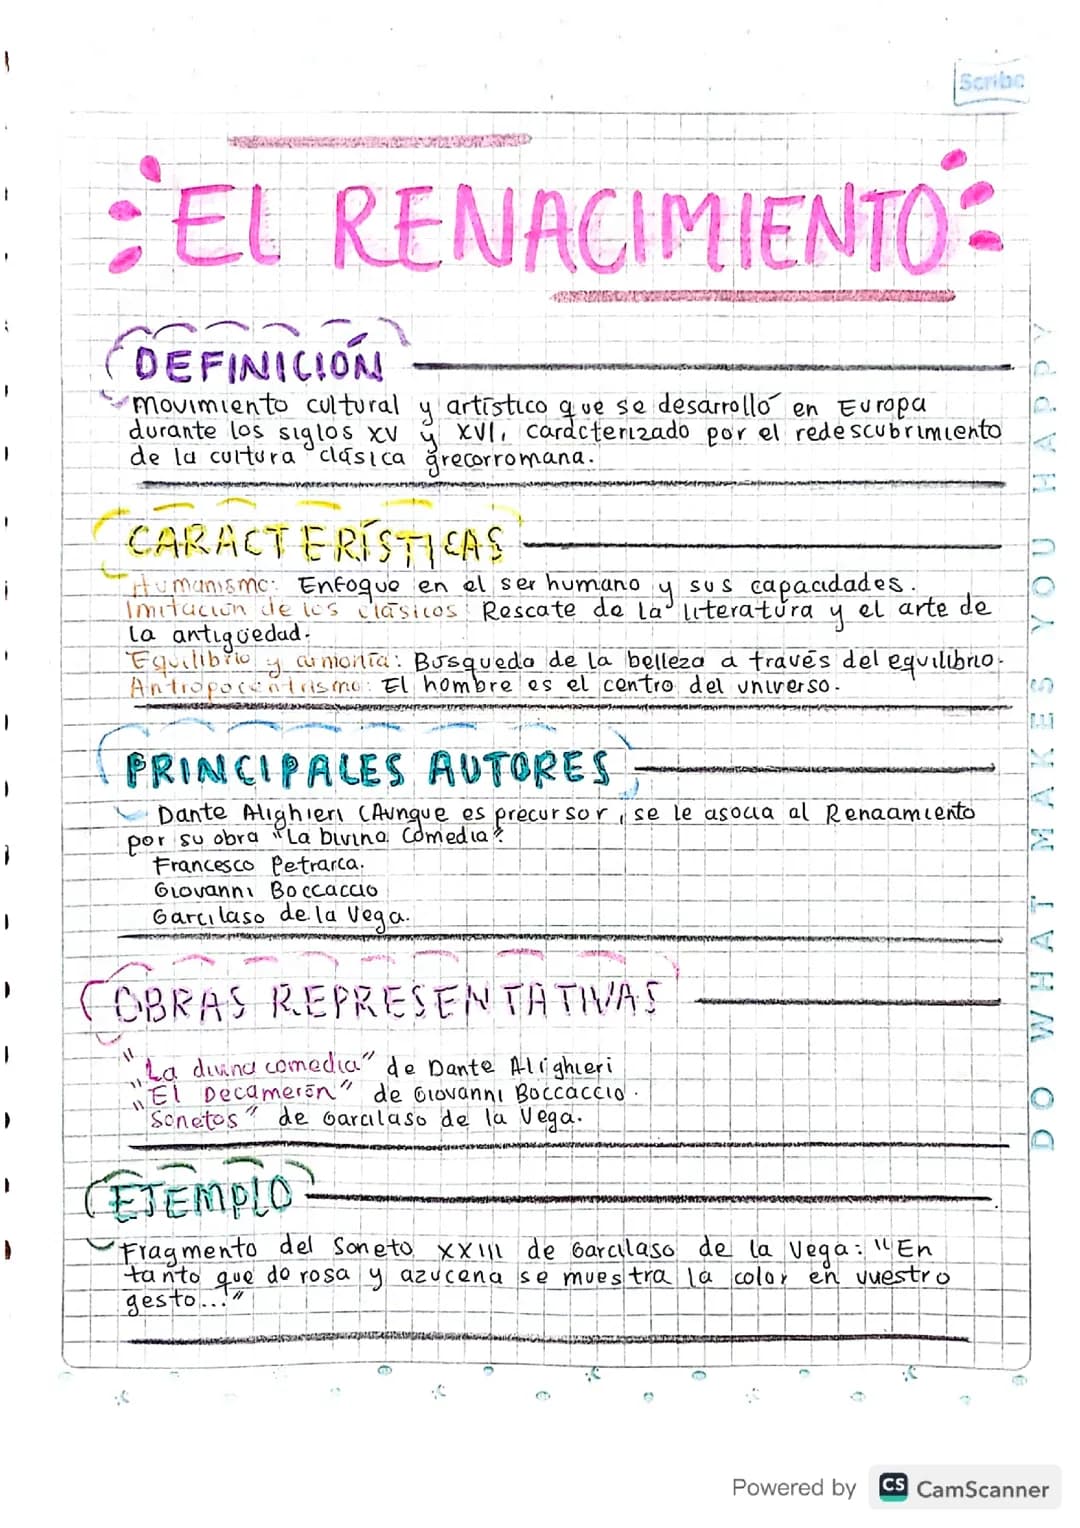 Scribe
EL RENACIMIENTO
DEFINICIÓN
Movimiento cultural y artístico que se desarrolló en Europa
durante los siglos XV y XVI, caracterizado por el redescubrimiento
de la cultura clásica grecorromana.
CARACTERÍSTICAS
Humanismo: Enfoque en el ser humano y sus capacidades.
Imitación de los clásicos: Rescate de la literatura y el arte de
la antigüedad.
Equilibrio y armonía: Busqueda de la belleza a través del equilibrio.
Antropocentrismo: El hombre es el centro del universo.
PRINCIPALES AUTORES
Dante Alighieri (Aunque es precursor, se le asocia al Renacimiento
por su obra "La Divina Comedia".
Francesco Petrarca.
Giovanni Boccaccio
Garcilaso de la Vega.
OBRAS REPRESENTATIVAS
"La divina comedia" de Dante Alighieri
"El Decamerón" de Giovanni Boccaccio.
"Sonetos" de Garcilaso de la Vega.
EJEMPLO
Fragmento del Soneto XXIII de Garcilaso de la Vega: "En
tanto que de rosa y azucena se muestra la color en vuestro
gesto..."
DO WHAT MAKES YOU HAPPY
Powered by CS CamScanner